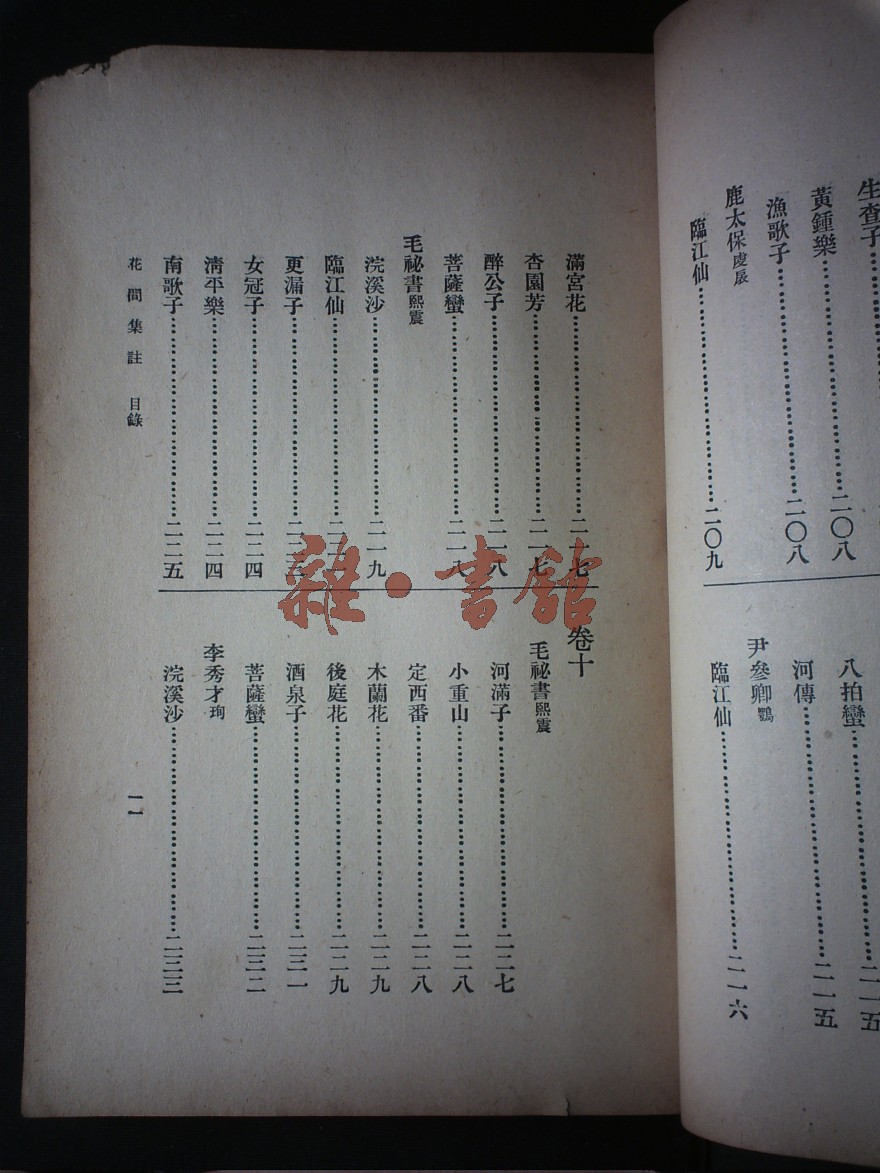 生查子
黃鍾樂……二〇八
漁歌子……二〇八
鹿太保虔扆
臨江仙……二〇九
八拍蠻……二一五
河傳……二一五
尹參卿鶚
臨江仙……二一六
滿宮花……二一七
杏園芳……二一七
醉公子……二一八
菩薩蠻……二一八
毛祕書熙震
浣溪沙……二一九
臨江仙……二二
更漏子……二二三
女冠子……二二四
清平樂……二二四
南歌子……二二五
卷十
毛祕書熙震
河滿子……二二七
小重山……二二八
定西番……二二八
木蘭花……二二九
後庭花……二二九
酒泉子……二三一
菩薩蠻……二三二
李秀才珣
浣溪沙……二三三
花間集註 目錄
一一
雜·書館